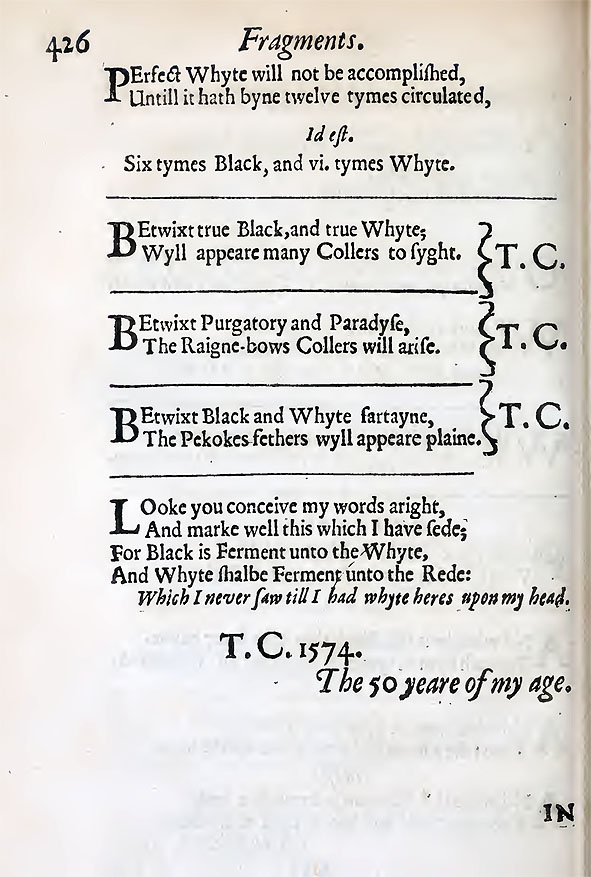 426 Fragments.
PErfect Whyte will not be accompliſhed,
Untill it hath byne twelve tymes circulated,
Id eſt.
Six tymes Black, and vi. tymes Whyte.
BEtwixt true Black, and true Whyte;
Wyll appeare many Collers to ſyght. T. C.
BEtwixt Purgatory and Paradyſe,
The Raigne-bows Collers will ariſe. T. C.
BEtwixt Black and Whyte ſartayne,
The Pekokes fethers wyll appeare plaine. T. C.
LOoke you conceive my words aright,
And marke well this which I have ſede;
For Black is Ferment unto the Whyte,
And Whyte ſhalbe Ferment unto the Rede:
Which I never ſaw till I had whyte heres upon my head.
T. C. 1574.
The 50 yeare of my age.
IN